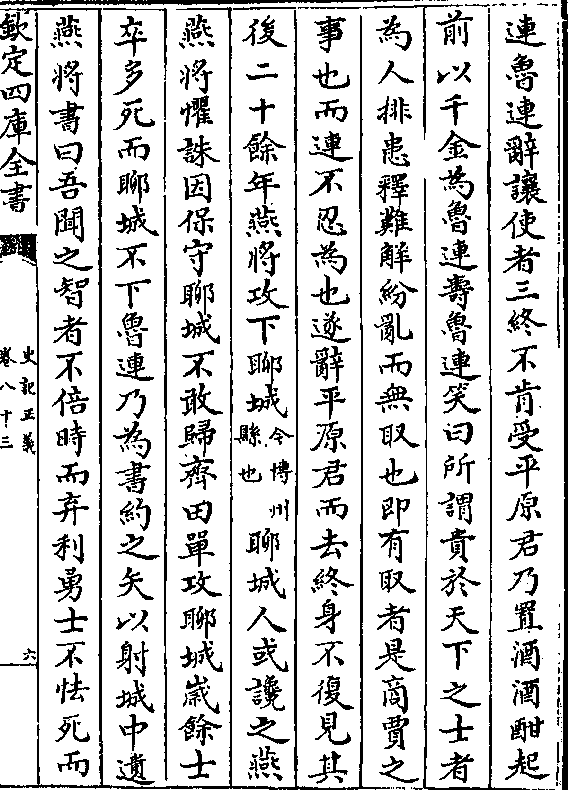 連魯連辭讓使者三終不肯受平原君乃置酒酒酣起
前以千金為魯連壽魯連笑曰所謂貴於天下之士者
為人排患釋難解紛亂而無取也即有取者是商賈之
事也而連不忍為也遂辭平原君而去終身不復見其
後二十餘年燕將攻下聊城今博州縣也聊城人或讒之燕
燕將懼誅因保守聊城不敢歸齊田單攻聊城嵗餘士
卒多死而聊城不下魯連乃為書約之矢以射城中遺
燕將書曰吾聞之智者不倍時而弃利勇士不怯死而
欽定四庫全書
史記正義
卷八十三
六